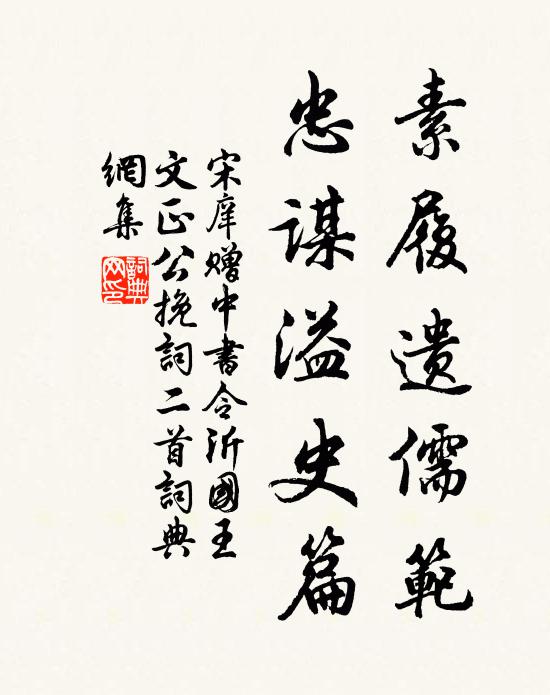 素履遺儒範
忠謀溢史篇
宋庠贈中書令沂國王
文正公挽詞二首詞典
網集
詞典網印